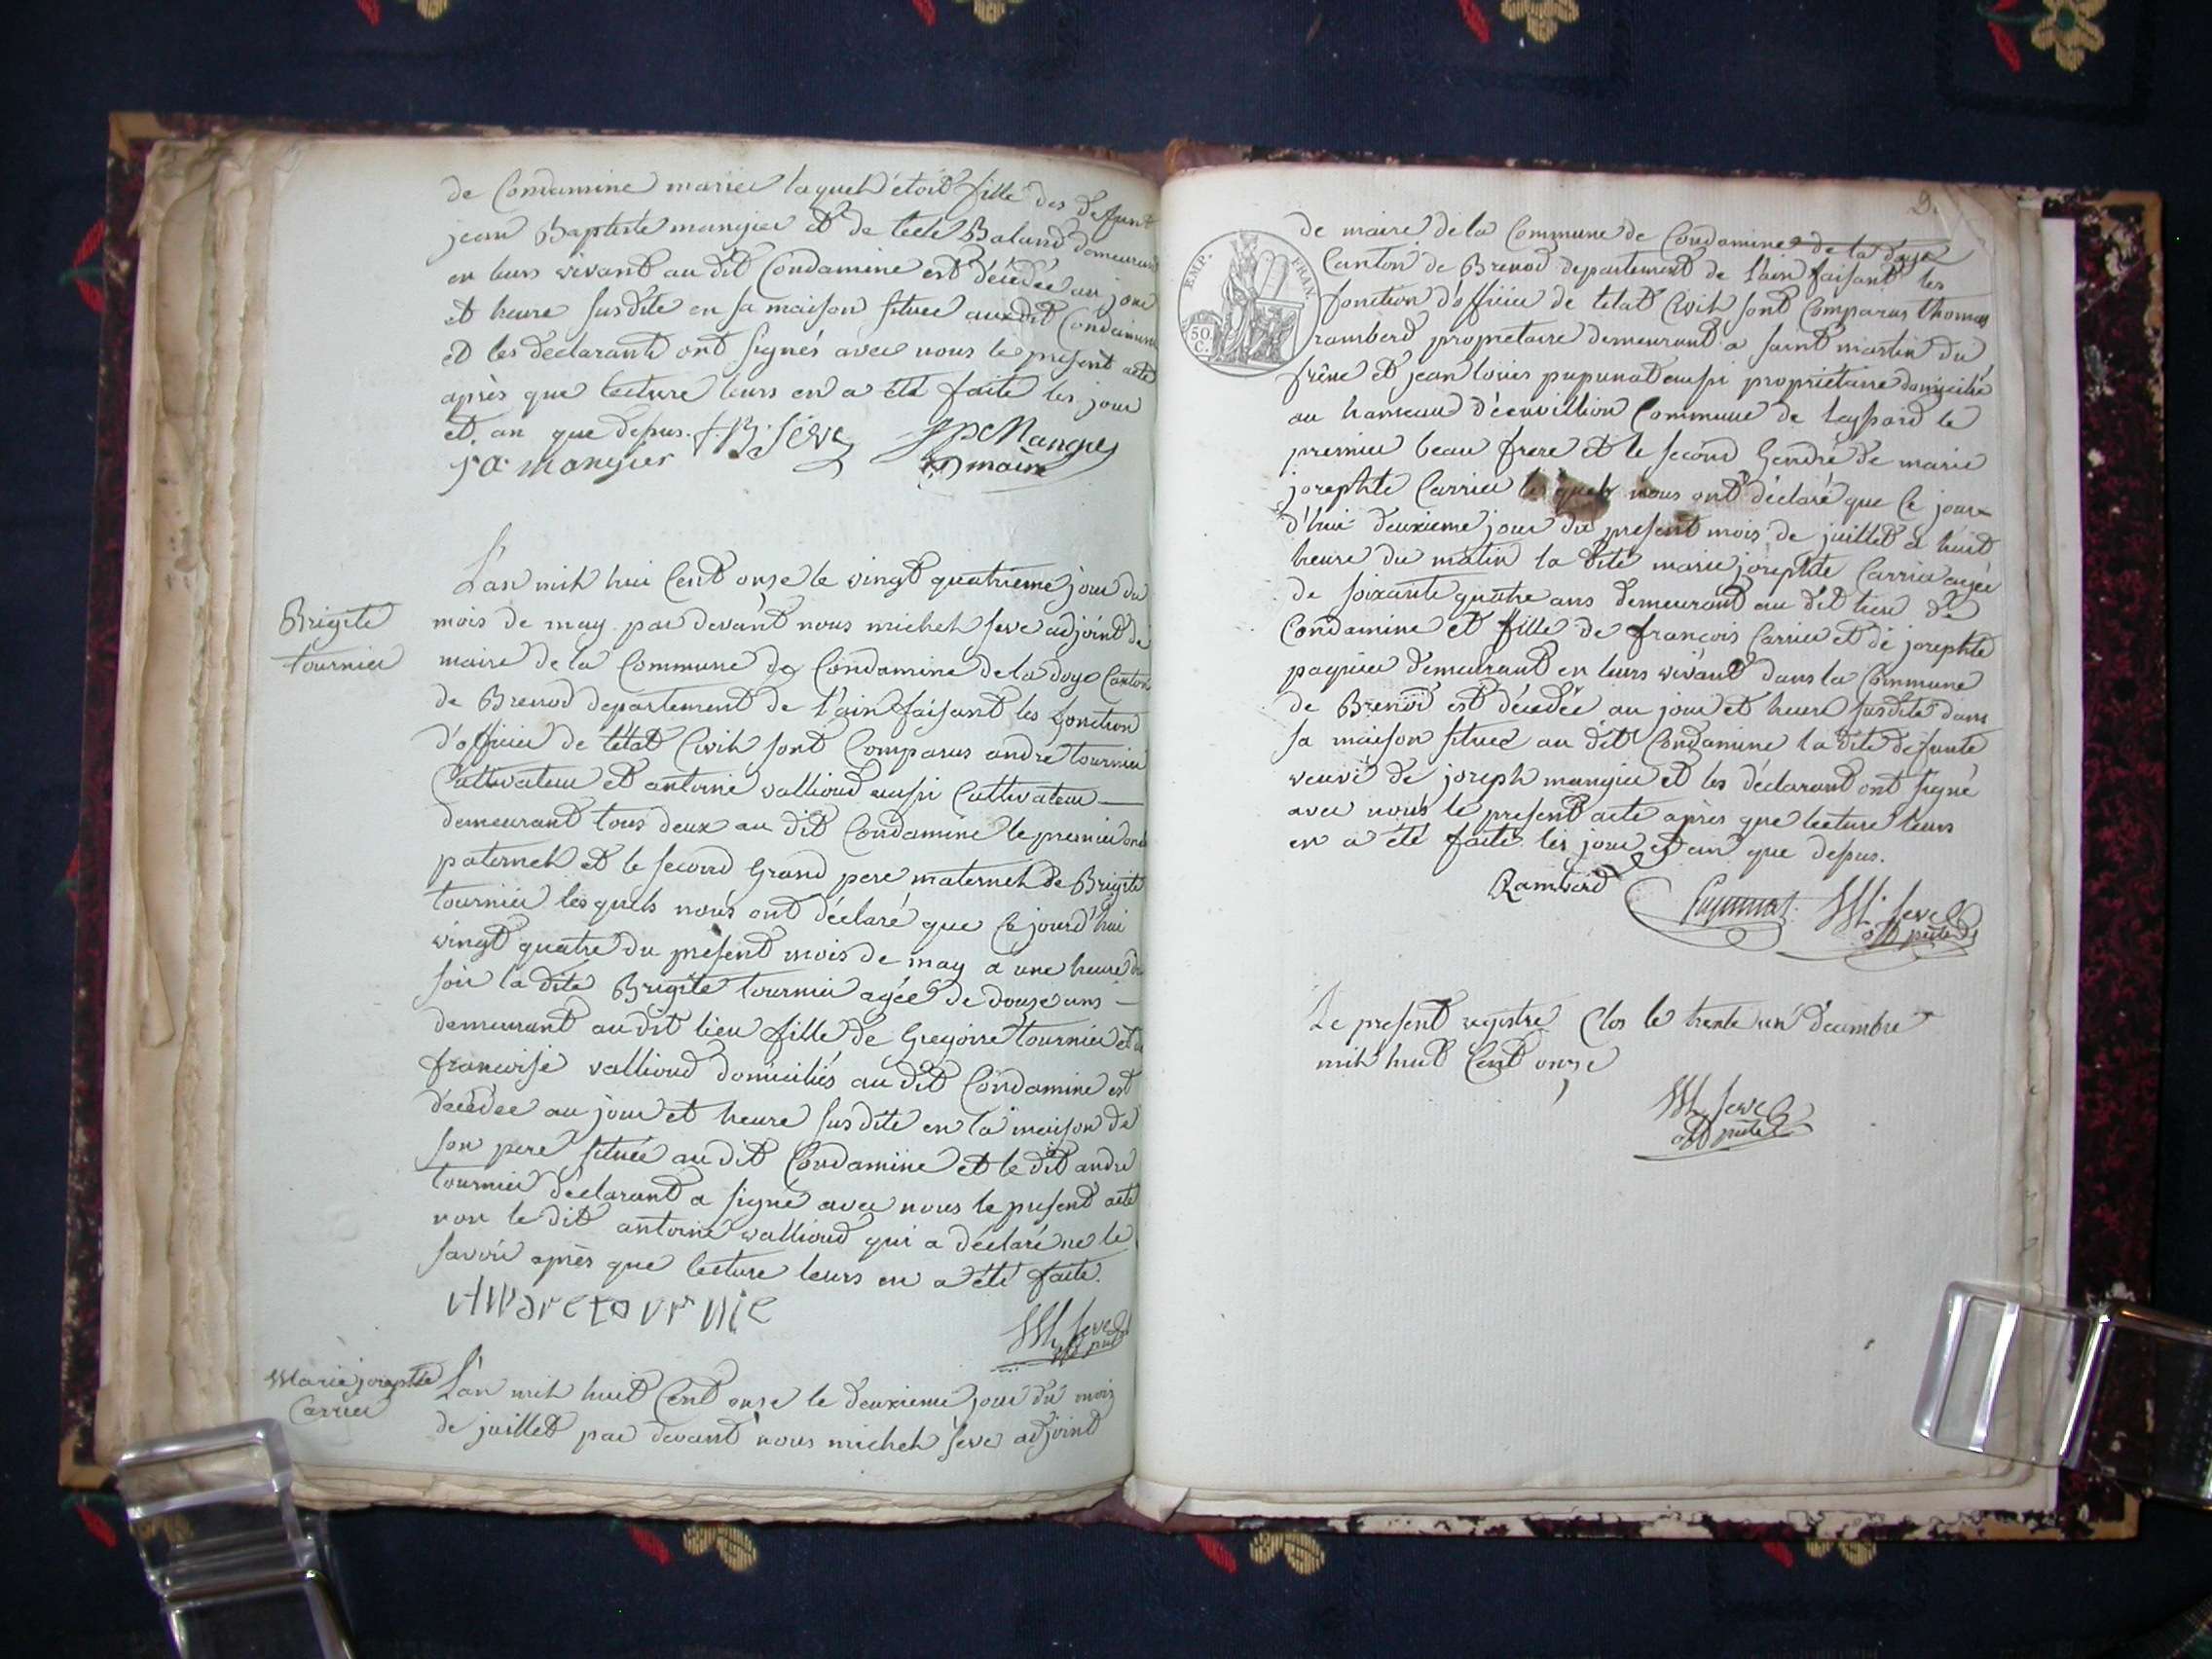 de Condamine mariée laquel étoit fille des defunt
jean Baptiste mangier et de tecle Baland demeurant
en leurs vivant au dit Condamine est décédée au jour
et heure susdite en sa maison située au dit Condamine
et les déclarants ont signés avec nous le present acte
après que lecture leurs en a été faite les jour
et an que dessus. J.B. Seve JP Mangier
j a mangier maire
Brigite
tournier
L'an mil hui Cent onze le vingt quatrieme jour du
mois de may par devant nous michel seve adjoint de
maire de la Commune de Condamine de la doye Canton
de Brenod departement de l'ain faisant les fonction
d'officier de l'état Civil sont Comparus andré tournier
Cultivateur et antoine vallioud aussi Cultivateur
demeurant tous deux au dit Condamine le premier oncle
paternel et le second Grand pere maternel de Brigite
tournier lesquels nous ont déclaré que Ce jourd'hui
vingt quatre du present mois de may a une heure du
soir la dite Brigite tournier agée de douze ans
demeurant au dit lieu fille de Gregoire tournier et de
francoise vallioud domiciliés au dit Condamine est
décédée au jour et heure susdite en la maison de
son pere située au dit Condamine et le dit andré
tournier déclarant a signé avec nous le present acte
non le dit antoine vallioud qui a déclaré ne le
savoir après que lecture leurs en a été faite.
Andre tournie
M. Seve
Marie josephte
Carrier
L'an mil huit Cent onze le deuxieme jour du mois
de juillet par devant nous michel seve adjoint
2.
de maire de la Commune de Condamine de la doye
Canton de Brenod departement de l'ain faisant les
EMP. FRAN.
50 C.
fonction d'officier de l'état Civil sont Comparus thomas
ramberd proprietaire demeurant a saint martin du
frêne et jean louis pupunat aussi propriétaire domicilié
au hameau d'écuvillion Commune de leyssard le
premier beau frere et le second Gendre de marie
josephte Carrier lesquels nous ont déclaré que Ce jour
d'hui deuxieme jour du present mois de juillet a huit
heure du matin la dite marie josephte Carrier agée
de soixante quatre ans demeurant au dit lieu de
Condamine et fille de francois Carrier et de josephte
paquier demeurant en leurs vivant dans la Commune
de Brenod est décédée au jour et heure susdite dans
sa maison située au dit Condamine la dite defunte
veuve de joseph mangier et les déclarant ont signé
avec nous le present acte après que lecture leurs
en a été faite les jour et an que dessus.
Ramberd Pupunat M. Seve
Le present registre Clos le trente un decembre
mil huit Cent onze
M. Seve